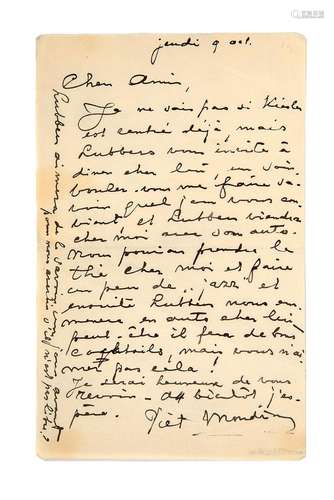 jeudi 9 oct.
Cher Amie,
Je ne sais pas si Kiesler
est rentré déjà, mais
Lubbers vous invite à
diner chez lui, un soir.
voulez-vous me faire sa-
voir quel jour vous con-
vient, et Lubbers viendra
chez moi avec son auto.
Nous pouvions prendre le
thé chez moi et faire
un peu de "jazz" et
ensuite Lubbers nous em-
mènera en auto chez lui
peut-être il fera de bons
cocktails, mais vous n'ai-
mez pas cela!
Je serai heureux de vous
revoir — à bientôt j'es-
père.
Piet Mondrian
Lubbers aimera de le savoir
pour nous avertir s'il n'est pas libre.